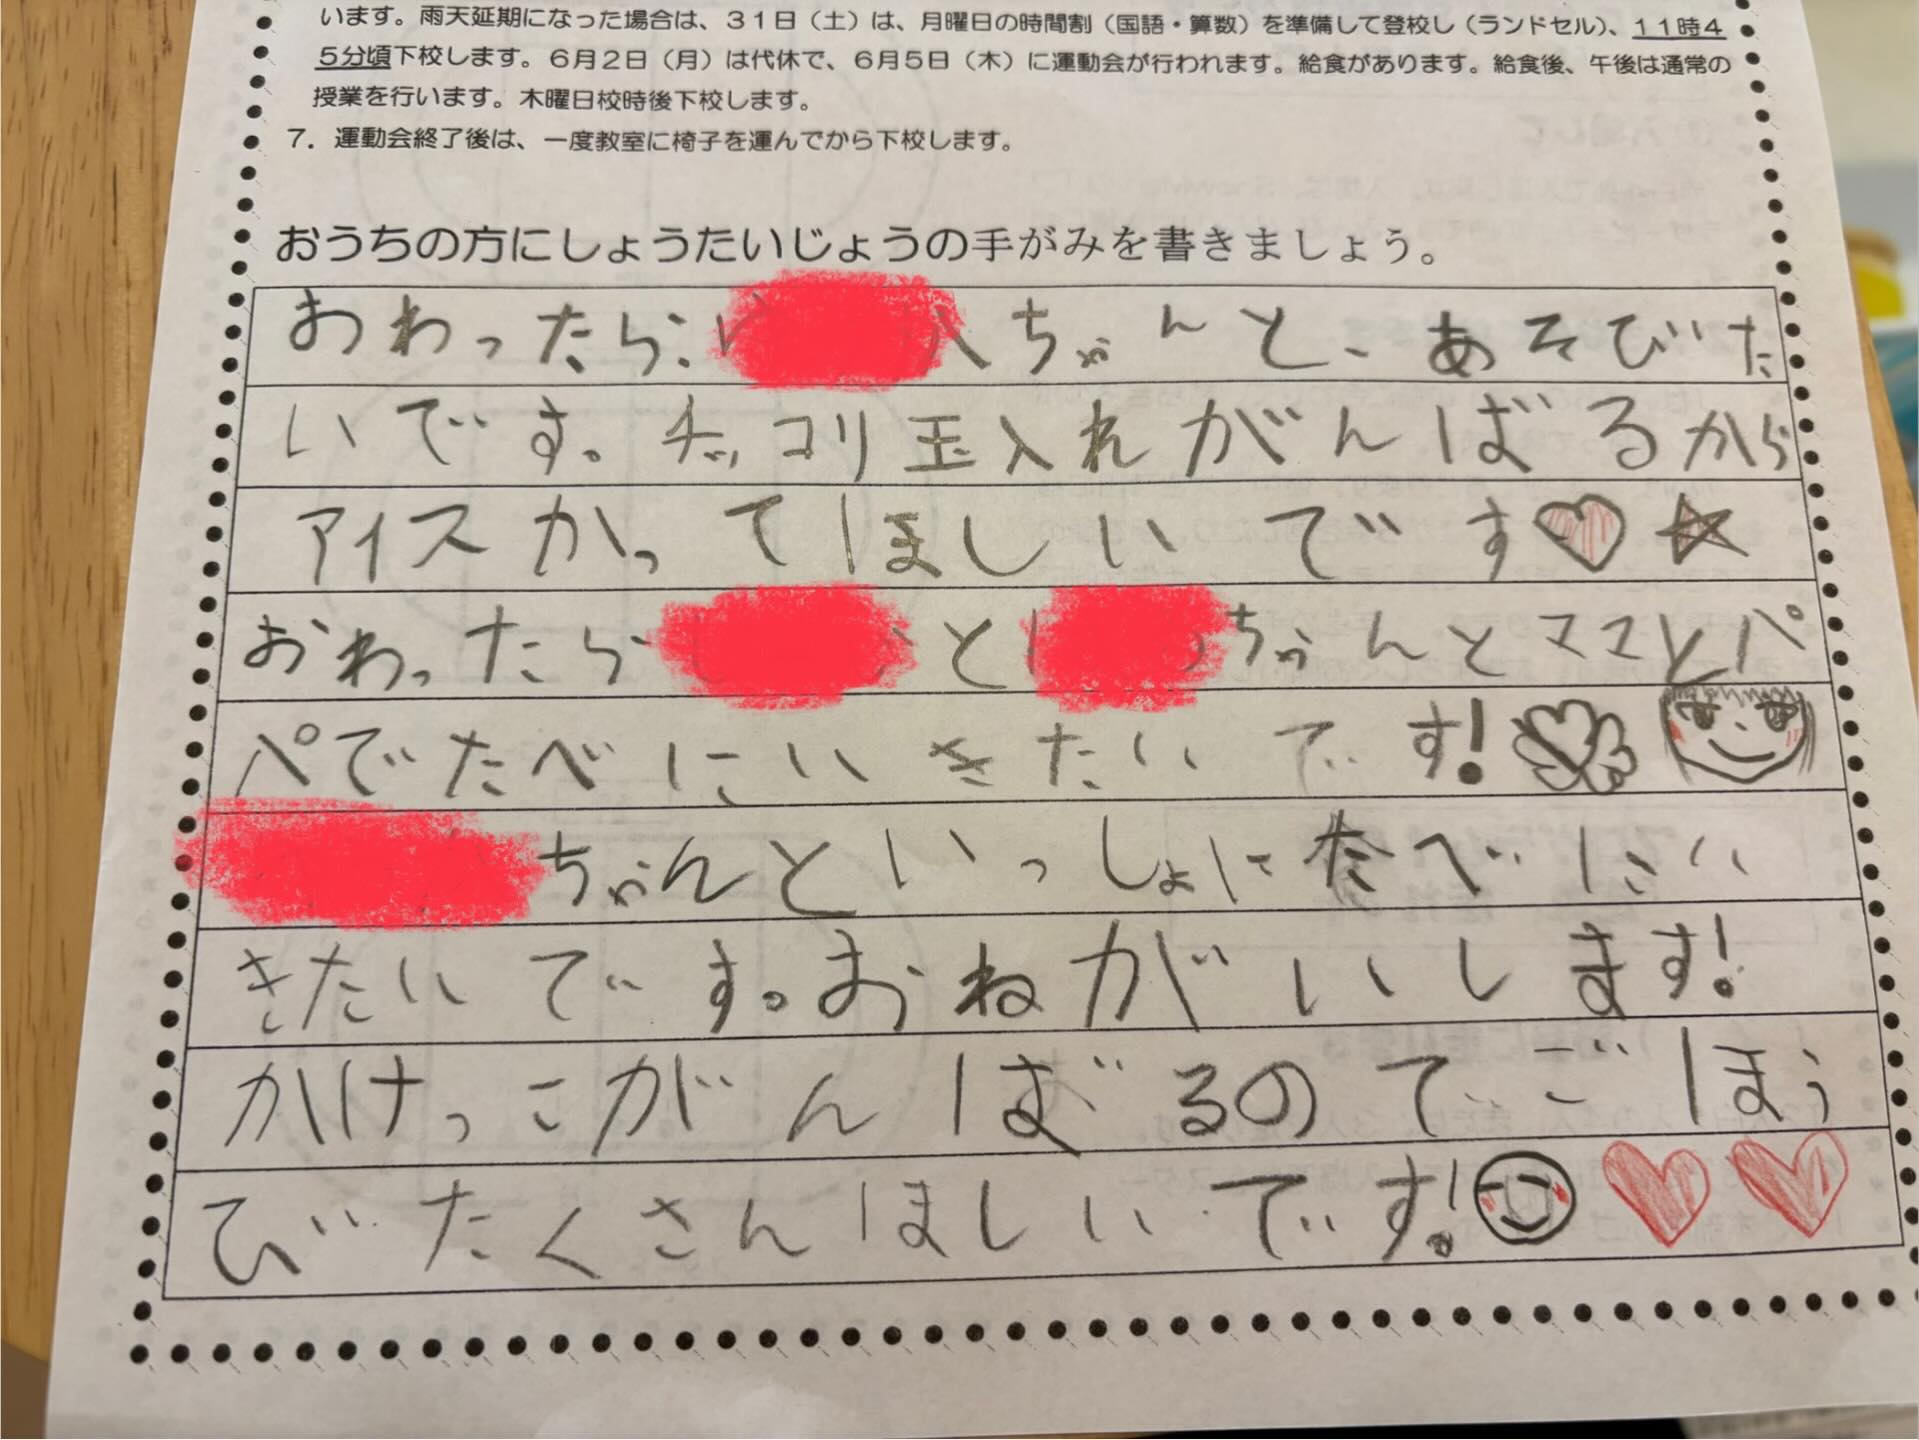 います。雨天延期になった場合は、３１日（土）は、月曜日の時間割（国語・算数）を準備して登校し（ランドセル）、１１時４
５分頃下校します。６月２日（月）は代休で、６月５日（木）に運動会が行われます。給食があります。給食後、午後は通常の
授業を行います。木曜日校時後下校します。
７．運動会終了後は、一度教室に椅子を運んでから下校します。
おうちの方にしょうたいじょうの手がみを書きましょう。
おわったら、ちゃんと、あそびた
いです。チッコリ玉入れがんばるから
アイスかってほしいです
おわったらとちゃんとママとパ
パでたべにいきたいです!
ちゃんといっしょにたべにい
きたいです。おねがいします!
かけっこがんばるのでごほう
びたくさんほしいです!